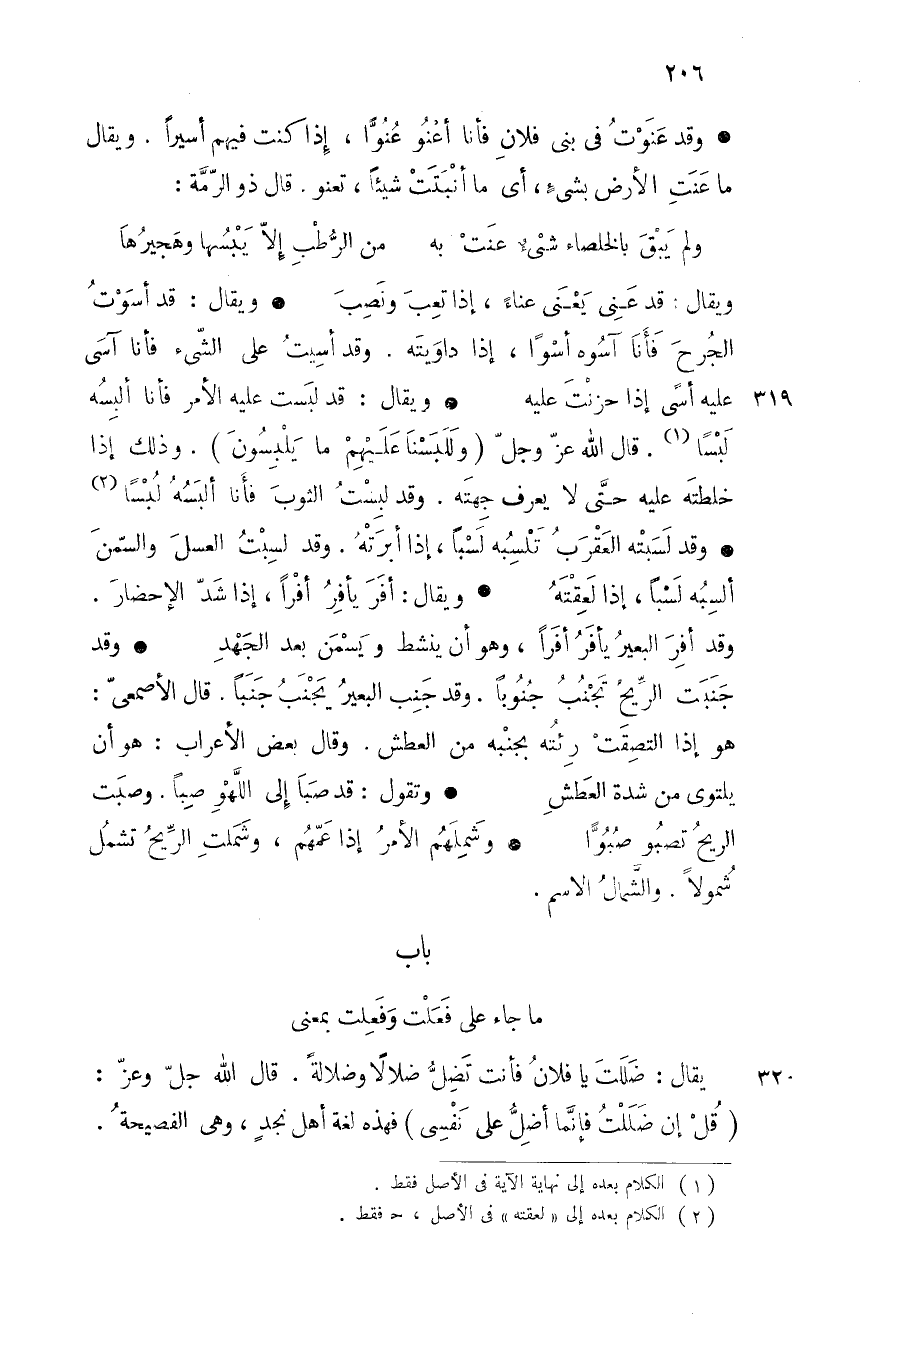 ٢٠٦
● وقد عَنَوْتُ فى بنى فلانٍ فأنا أعْنُو عُنُوًّا ، إذا كنت فيهم أسيراً . ويقال
ما عَنَتِ الأرض بشىءٍ، أى ما أنْبَتَتْ شيئاً ، تعنو . قال ذو الرّمَّة :
ولم يَبْقَ بالخلصاء شىْءٌ عنَتْ به من الرُّطْبِ إلاّ يَبْسُها وهَجيرُها
ويقال : قد عَنِى يَعْنَى عناءً ، إذا تعِبَ ونَصِبَ ● ويقال : قد أسَوْتُ
الجُرحَ فَأَنَا آسُوه أسْوًا ، إذا داوَيتَه . وقد أسِيتُ على الشّىء فأنا آسَى
٣١٩ عليه أسًى إذا حزنْتَ عليه ● ويقال : قد لبَست عليه الأمر فأنا ألبِسُه
لَبْسًا (١) . قال الله عزّ وجلّ ( وَلَلَبَسْنَا عَلَيْهِمْ ما يَلْبِسُونَ ) . وذلك إذا
خلطتَه عليه حتَّى لا يعرف جهتَه . وقد لبِسْتُ الثوبَ فأنا ألبَسُهُ لُبْسًا (٢)
● وقد لَسَبَتْه العَقْرَبُ تَلْسِبُه لَسْباً ، إذا أبرَتْهُ . وقد لسِبْتُ العسلَ والسّمنَ
ألسِبُه لَسْباً ، إذا لَعِقْتَهُ ● ويقال : أفَرَ يأفِرُ أفْراً ، إذا شدّ الإحضارَ .
وقد أفِرَ البعيرُ يأفَرُ أفَراً ، وهو أن ينشط ويَسْمَن بعد الجَهْدِ ● وقد
جَنَبَت الرِّيحُ تَجْنُبُ جُنُوباً . وقد جَنِب البعيرُ يَجْنَبُ جَنَباً . قال الأصمعىّ :
هو إذا التصِقَتْ رِئتُه بجنْبِه من العطش . وقال بعض الأعراب : هو أن
يلتوى من شدة العطَشِ ● وتقول : قد صَبَا إلى اللَّهْوِ صِباً . وصبَت
الريحُ تصبُو صُبُوًّا ● وشَمِلَهُم الأمرُ إذا عَمّهُم ، وشَملتِ الرِّيحُ تشمُل
شُمولاً . والشَّمالُ الاسم .
باب
ما جاء على فَعَلْت وَفَعِلت بمعنى
٣٢٠ يقال : ضَلَلتَ يا فلانُ فأنت تَضِلُّ ضلالًا وضلالةً . قال الله جلّ وعزّ :
( قُلْ إن ضَلَلْتُ فإنَّما أضِلُّ على نَفْسِى ) فهذه لغة أهل نجدٍ ، وهى الفصيحةُ .
( ١ ) الكلام بعده إلى نهاية الآية فى الأصل فقط .
( ٢ ) الكلام بعده إلى « لعقته » فى الأصل ، ح فقط .